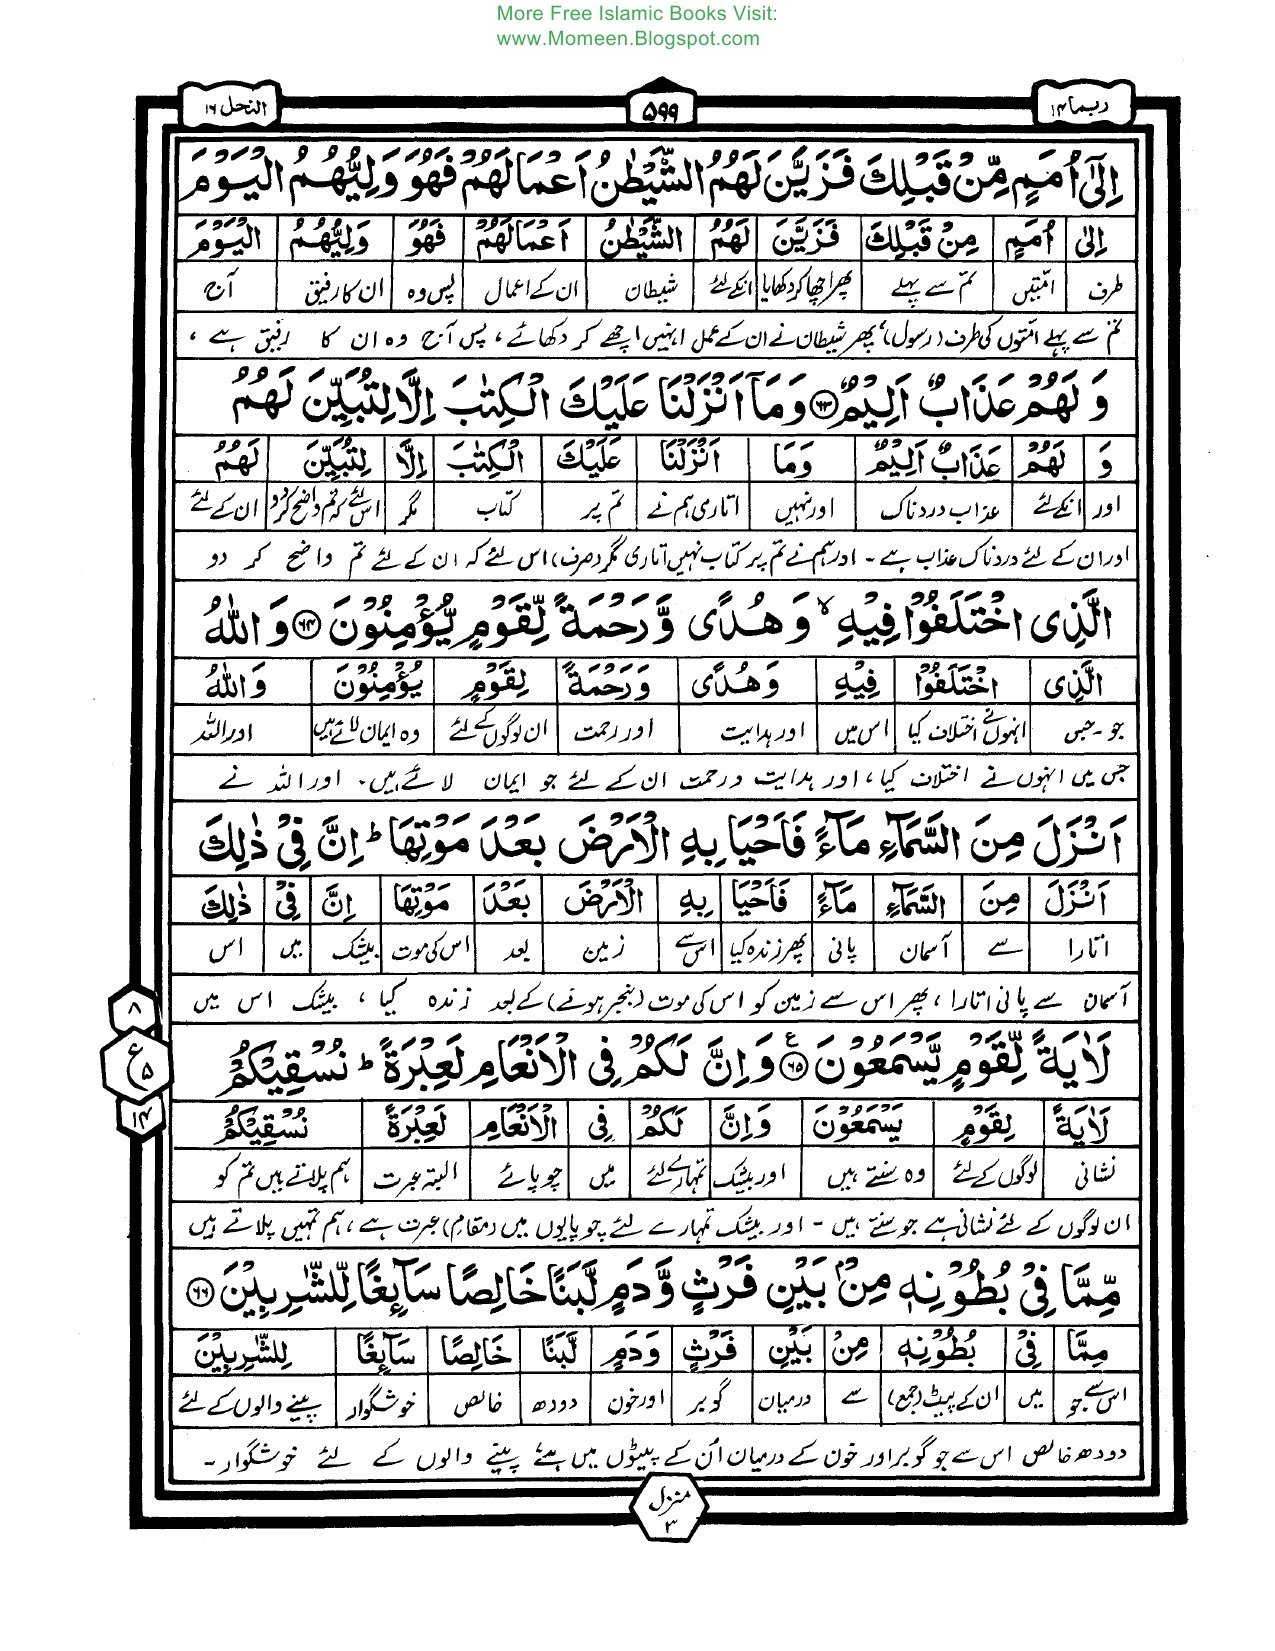 More Free Islamic Books Visit:
www.Momeen.Blogspot.com
ربما ۱۴ ۵۹۹ النحل ۱۶
اِلٰۤى اُمَمٍ مِّنْ قَبْلِكَ فَزَيَّنَ لَهُمُ الشَّيْطٰنُ اَعْمَالَهُمْ فَهُوَ وَلِيُّهُمُ الْيَوْمَ
اِلٰى اُمَمٍ مِنْ قَبْلِكَ فَزَيَّنَ لَهُمُ الشَّيْطٰنُ اَعْمَالَهُمْ فَهُوَ وَلِيُّهُمُ الْيَوْمَ
طرف امتیں تم سے پہلے پھر اچھا کر دکھایا انکے لئے شیطان ان کے اعمال پس وہ ان کا رفیق آج
تم سے پہلے امتوں کی طرف (رسول)، پھر شیطان نے ان کے عمل انہیں اچھے کر دکھائے، پس آج وہ ان کا رفیق ہے،
وَلَهُمْ عَذَابٌ اَلِيْمٌ ﴿۶۳﴾ وَمَاۤ اَنْزَلْنَا عَلَيْكَ الْكِتٰبَ اِلَّا لِتُبَيِّنَ لَهُمُ
وَ لَهُمْ عَذَابٌ اَلِيْمٌ وَمَا اَنْزَلْنَا عَلَيْكَ الْكِتٰبَ اِلَّا لِتُبَيِّنَ لَهُمُ
اور انکے لئے عذاب دردناک اور نہیں اتاری ہم نے تم پر کتاب مگر اس لئے کہ تم واضح کر دو ان کے لئے
اور ان کے لئے دردناک عذاب ہے ۔ اور ہم نے تم پر کتاب نہیں اتاری مگر (صرف) اس لئے کہ ان کے لئے تم واضح کر دو
الَّذِى اخْتَلَفُوْا فِيْهِ ۙ وَهُدًى وَّرَحْمَةً لِّقَوْمٍ يُّؤْمِنُوْنَ ﴿۶۴﴾ وَاللّٰهُ
الَّذِى اخْتَلَفُوْا فِيْهِ وَهُدًى وَرَحْمَةً لِقَوْمٍ يُؤْمِنُوْنَ وَاللّٰهُ
جو ۔ جس انہوں نے اختلاف کیا اس میں اور ہدایت اور رحمت ان لوگوں کے لئے وہ ایمان لائے ہیں اور اللہ
جس میں انہوں نے اختلاف کیا، اور ہدایت و رحمت ان کے لئے جو ایمان لائے ہیں۔ اور اللہ نے
اَنْزَلَ مِنَ السَّمَآءِ مَآءً فَاَحْيَا بِهِ الْاَرْضَ بَعْدَ مَوْتِهَا ؕ اِنَّ فِىْ ذٰلِكَ
اَنْزَلَ مِنَ السَّمَآءِ مَآءً فَاَحْيَا بِهِ الْاَرْضَ بَعْدَ مَوْتِهَا اِنَّ فِىْ ذٰلِكَ
اتارا سے آسمان پانی پھر زندہ کیا اس سے زمین بعد اس کی موت بیشک میں اس
آسمان سے پانی اتارا، پھر اس سے زمین کو اس کی موت (بنجر ہونے) کے بعد زندہ کیا، بیشک اس میں
۸ ع ۵ ۱۴
لَاٰيَةً لِّقَوْمٍ يَّسْمَعُوْنَ ﴿۶۵﴾ ع وَاِنَّ لَكُمْ فِى الْاَنْعَامِ لَعِبْرَةً ؕ نُسْقِيْكُمْ
لَاٰيَةً لِقَوْمٍ يَسْمَعُوْنَ وَاِنَّ لَكُمْ فِى الْاَنْعَامِ لَعِبْرَةً نُسْقِيْكُمْ
نشانی لوگوں کے لئے وہ سنتے ہیں اور بیشک تمہارے لئے میں چوپائے البتہ عبرت ہم پلاتے ہیں تم کو
ان لوگوں کے لئے نشانی ہے جو سنتے ہیں ۔ اور بیشک تمہارے لئے چوپایوں میں (مقام) عبرت ہے، ہم تمہیں پلاتے ہیں
مِّمَّا فِىْ بُطُوْنِهٖ مِنْۢ بَيْنِ فَرْثٍ وَّدَمٍ لَّبَنًا خَالِصًا سَآئِغًا لِّلشّٰرِبِيْنَ ﴿۶۶﴾
مِمَّا فِىْ بُطُوْنِهٖ مِنْ بَيْنِ فَرْثٍ وَدَمٍ لَّبَنًا خَالِصًا سَآئِغًا لِلشّٰرِبِيْنَ
اس سے جو میں ان کے پیٹ (جمع) سے درمیان گوبر اور خون دودھ خالص خوشگوار پینے والوں کے لئے
دودھ خالص اس سے جو گوبر اور خون کے درمیان اُن کے پیٹوں میں ہے، پینے والوں کے لئے خوشگوار ۔
منزل ۳